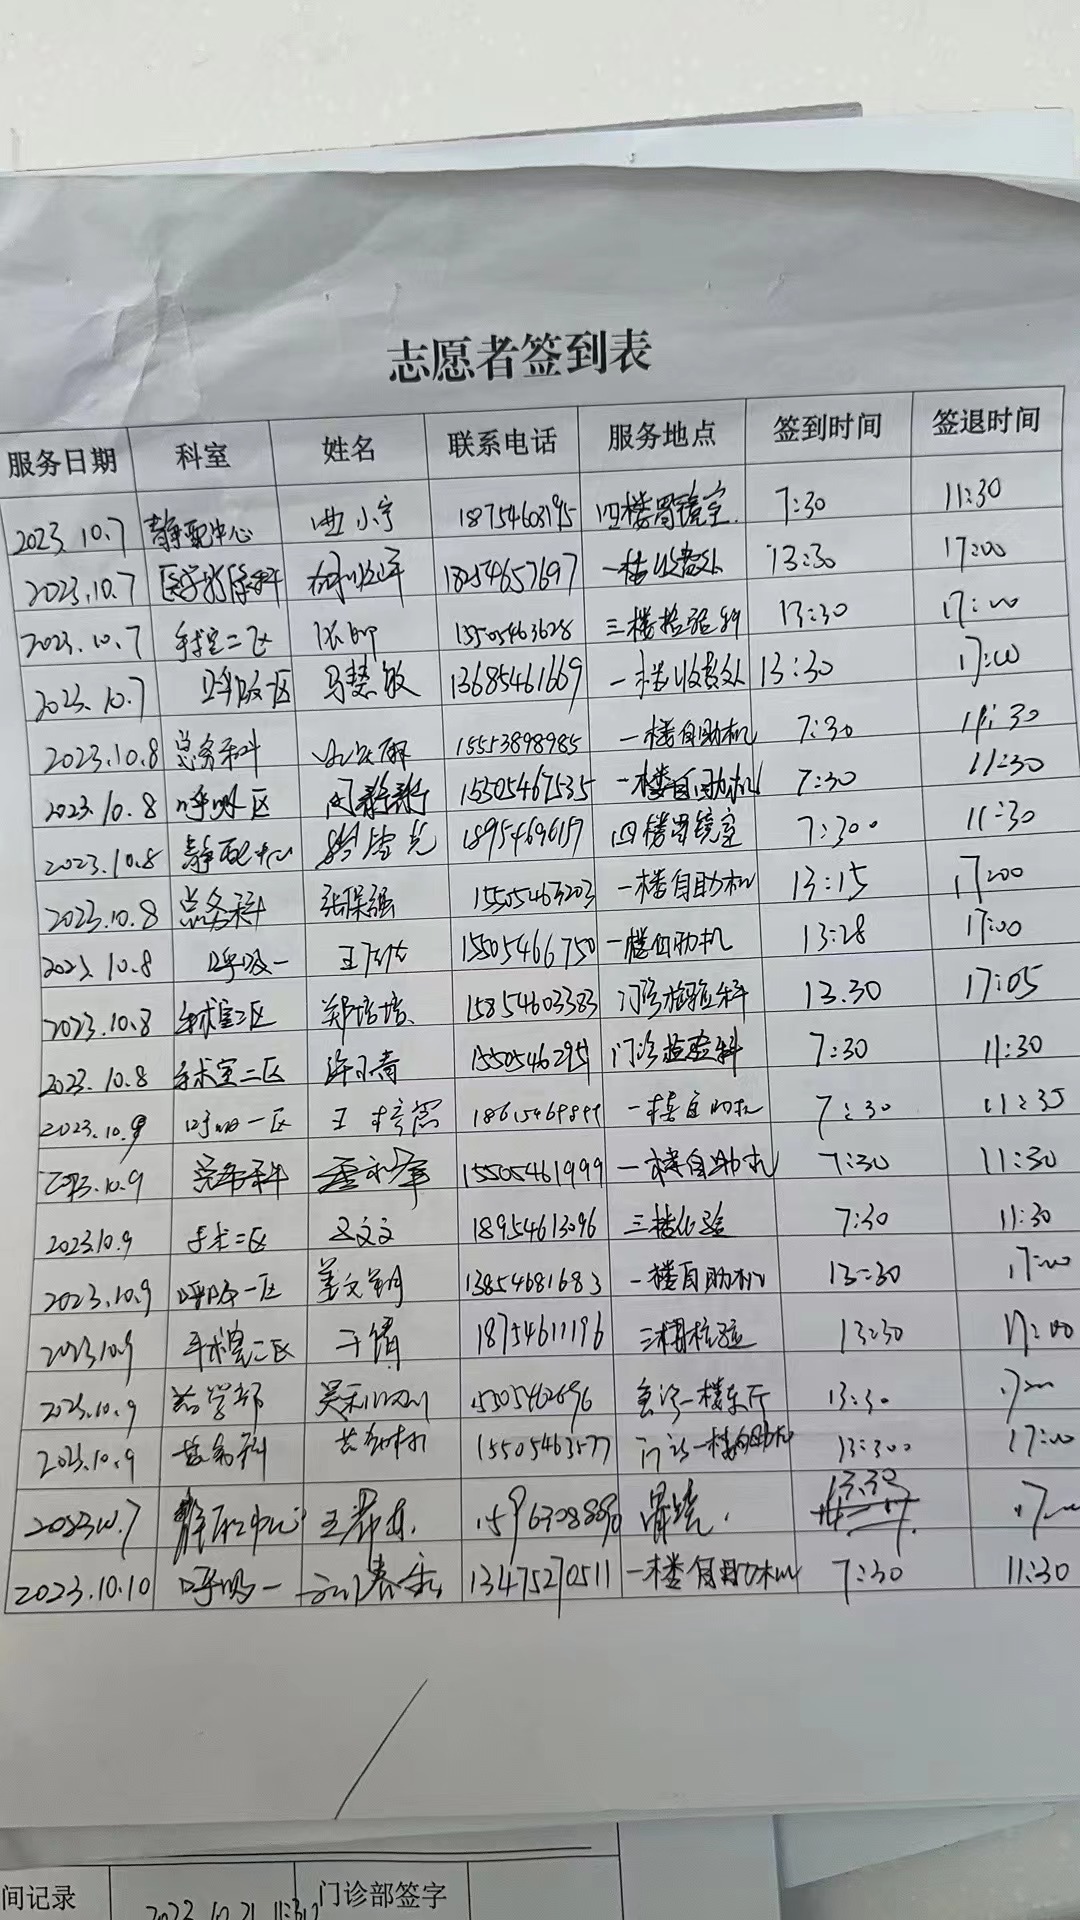 志愿者签到表
服务日期 科室 姓名 联系电话 服务地点 签到时间 签退时间
2023.10.7 静配中心 曲小宁 18754603195 四楼胃镜室. 7:30 11:30
2023.10.7 医学影像科 18254657697 一楼收费处 13:30 17:00
2023.10.7 手术室二区 张帅 15505463628 三楼检验科 13:30 17:00
2023.10.7 呼吸一区 马慧敏 13685461669 一楼收费处 13:30 17:00
2023.10.8 总务科 15553898985 一楼自助机 7:30 11:30
2023.10.8 呼吸一区 闫静静 15505467535 一楼自助机 7:30 11:30
2023.10.8 静配中心 四楼胃镜室 7:30 11:30
2023.10.8 总务科 张保强 15505463203 一楼自助机 13:15 17:00
2023.10.8 呼吸一 15505466750 一楼自助机 13:28 17:00
2023.10.8 手术室二区 郑培培 15854603383 门诊检验科 13.30 17:05
2023.10.8 手术室二区 许小青 门诊检验科 7:30 11:30
2023.10.9 呼吸一区 一楼自助机 7:30 11:35
2023.10.9 总务科 15505461999 一楼自助机 7:30 11:30
2023.10.9 手术二区 文文 18954613096 三楼化验 7:30 11:30
2023.10.9 呼吸一区 姜文娟 13854681683 一楼自助机 13:30 17:00
2023.10.9 手术室二区 于倩 18754611196 三楼检验 13:30 17:00
2023.10.9 药学部 一楼东厅 13:30 17:00
2023.10.9 总务科 15505463577 门诊一楼自助机 13:30 17:00
2023.10.7 静配中心 胃镜. 13:30 17:00
2023.10.10 呼吸一 刘春 13475270511 一楼自助机 7:30 11:30
间记录 2023.10.21 门诊部签字